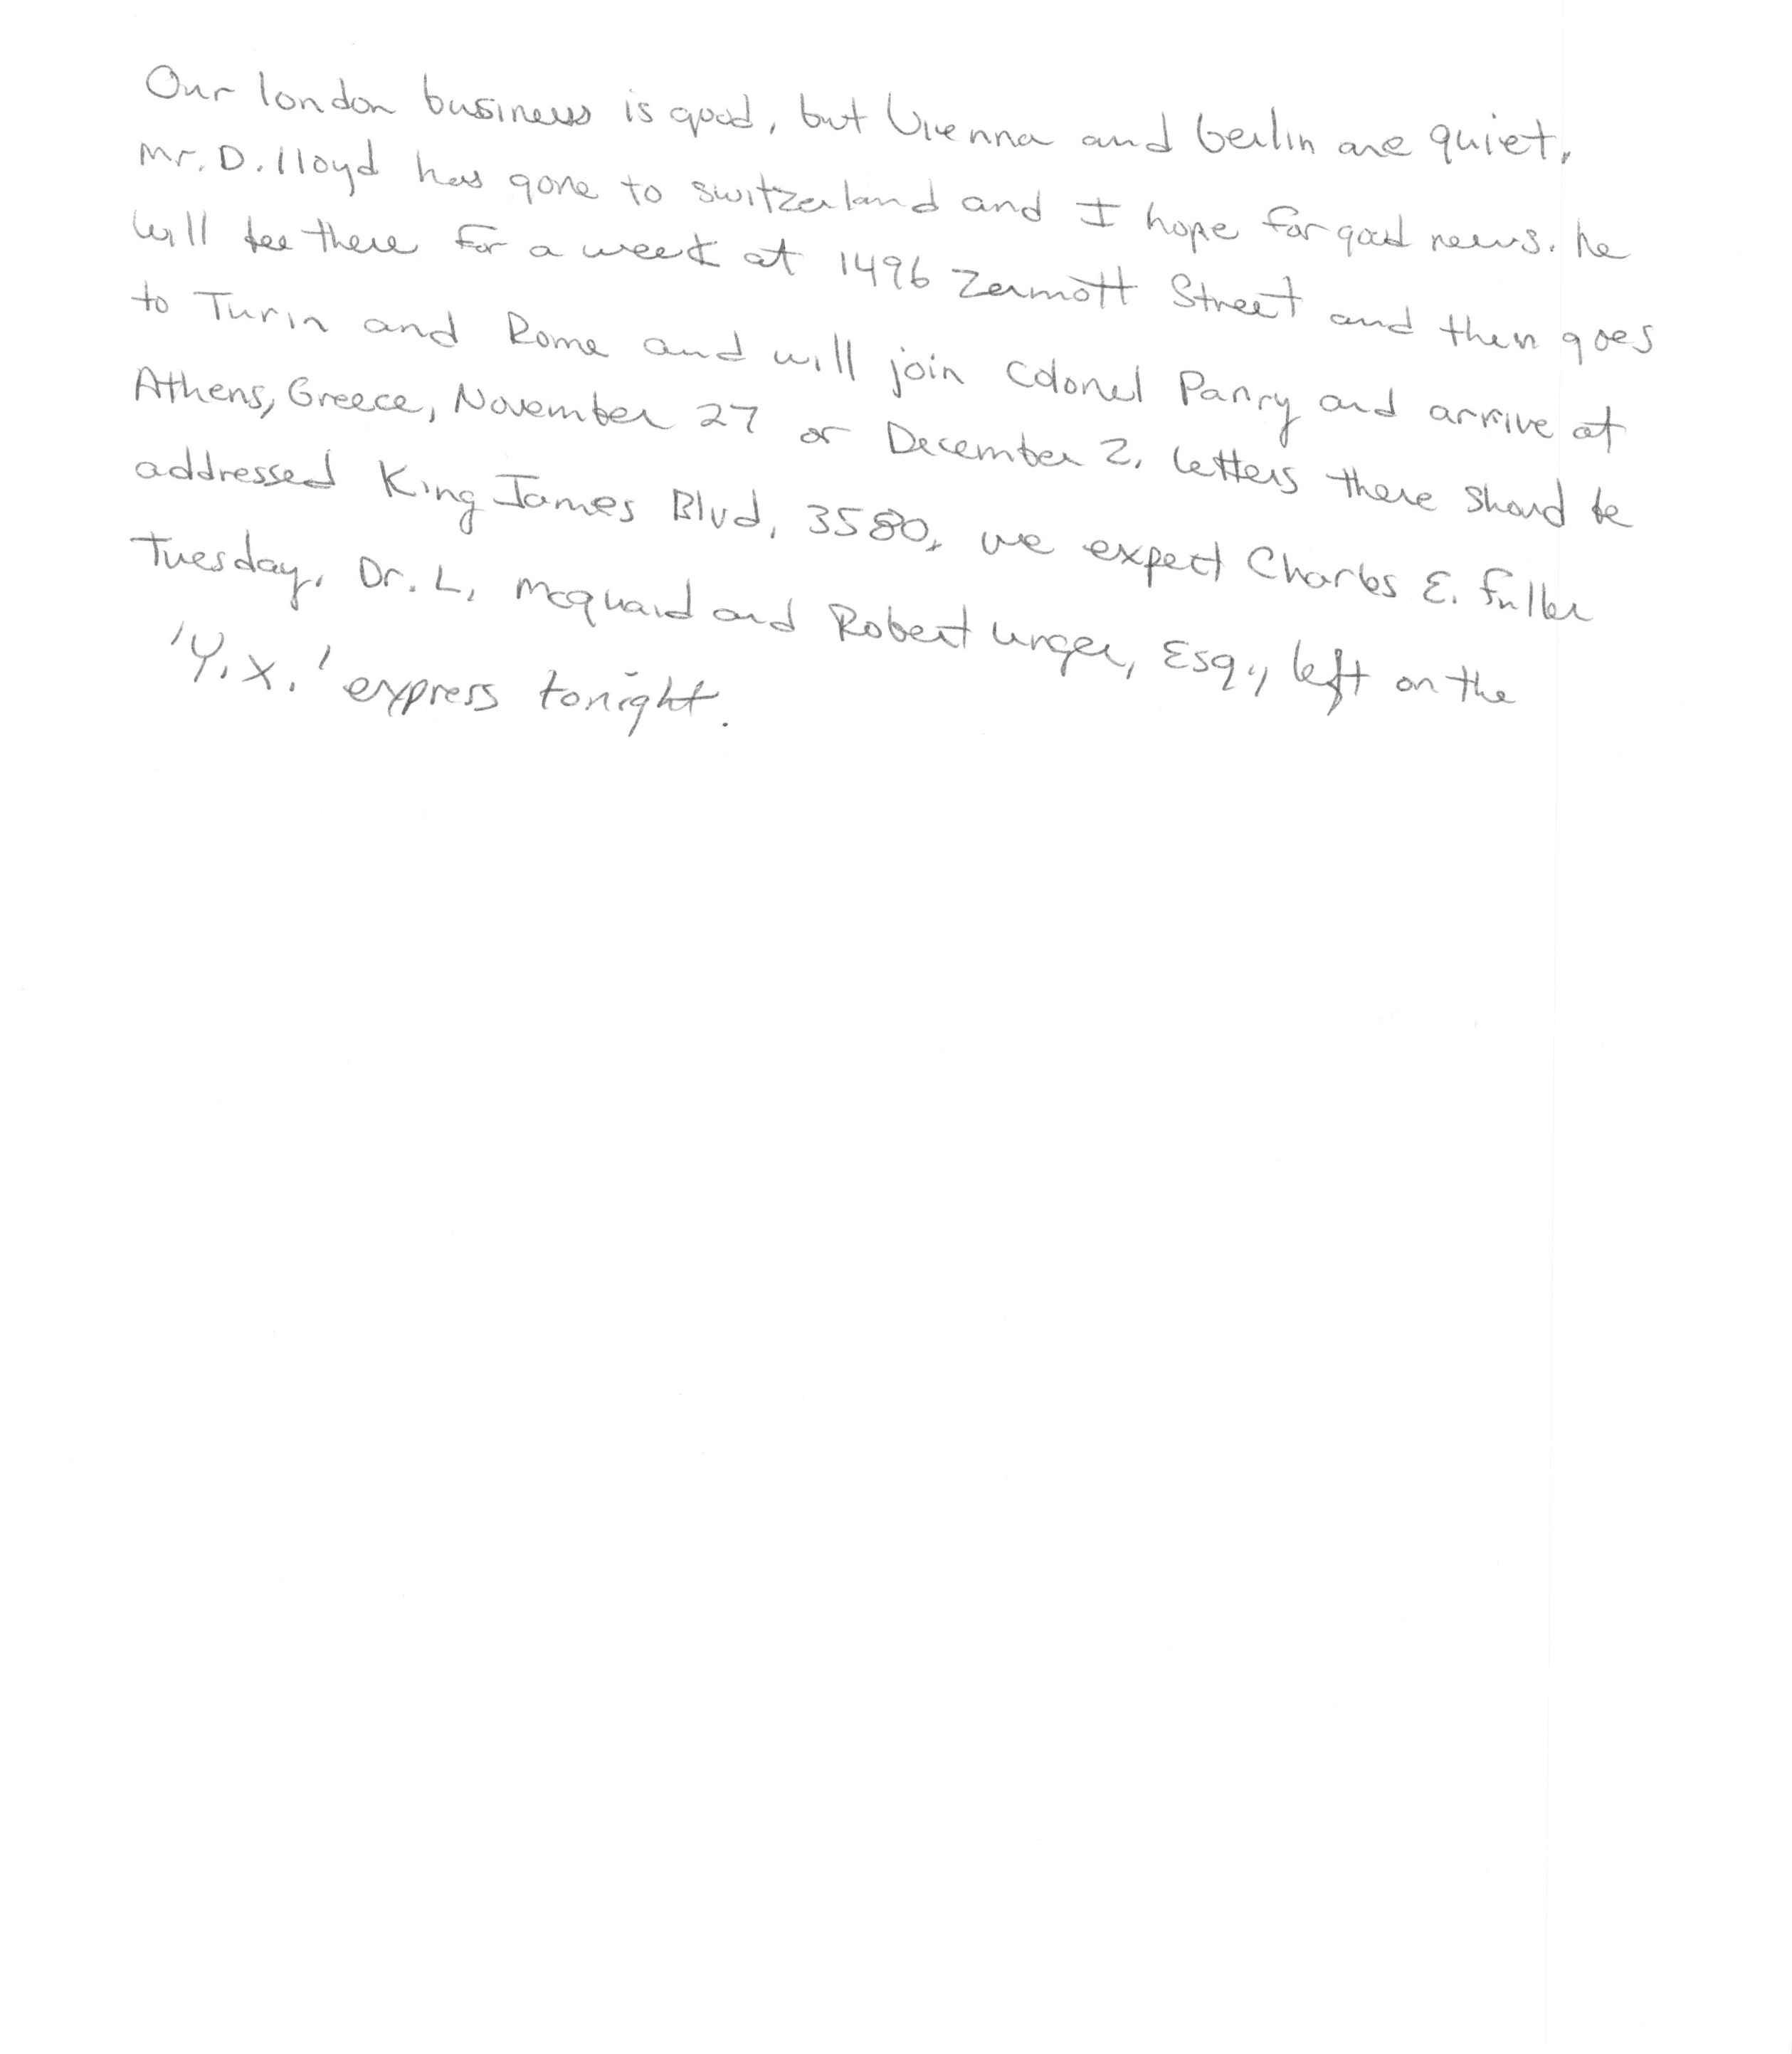 Our london business is good, but Vienna and berlin are quiet.
Mr. D. lloyd has gone to switzerland and I hope for good news. he
will bee there for a week at 1496 Zermott Street and then goes
to Turin and Rome and will join Colonel Parry and arrive at
Athens, Greece, November 27 or December 2. letters there shoud be
addressed King James Blvd, 3580. we expect Charles E. fuller
Tuesday. Dr. L. Mcquaid and Robert unger, Esq., left on the
'Y.X.' express tonight.